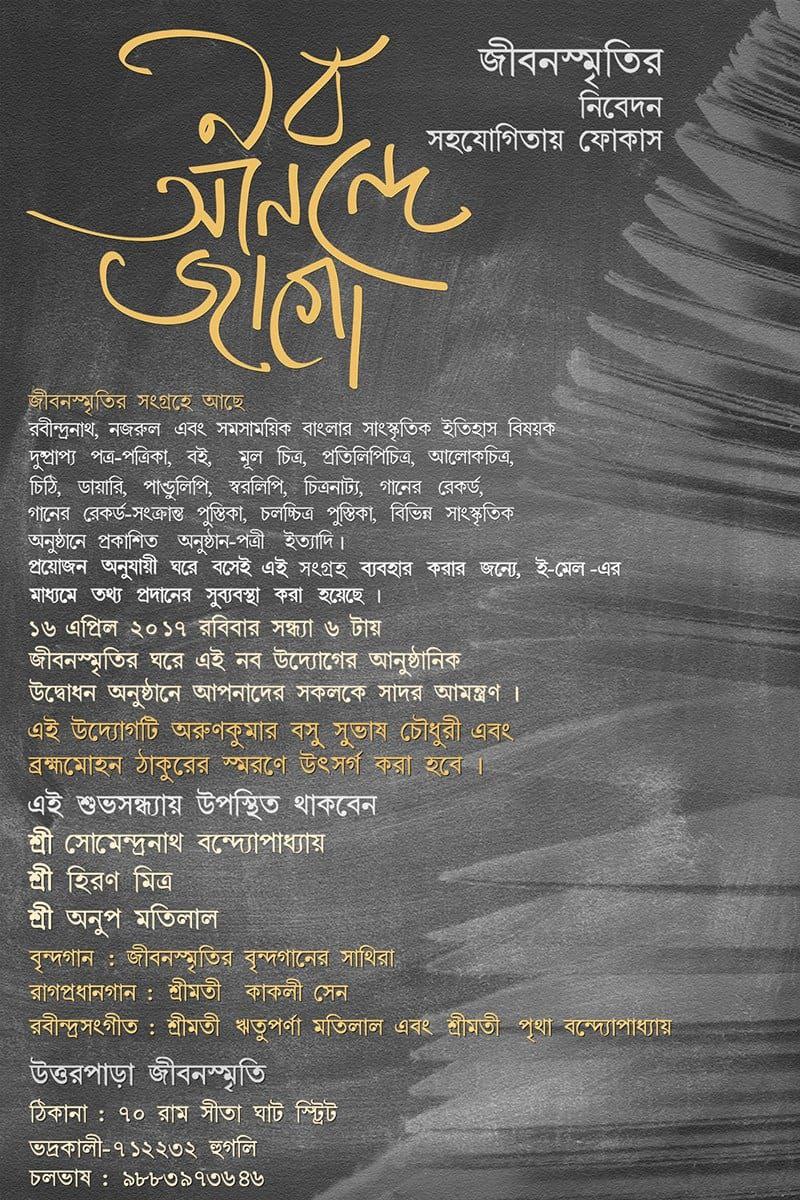 নব
আনন্দে
জাগো
জীবনস্মৃতির
নিবেদন
সহযোগিতায় ফোকাস
জীবনস্মৃতির সংগ্রহে আছে
রবীন্দ্রনাথ, নজরুল এবং সমসাময়িক বাংলার সাংস্কৃতিক ইতিহাস বিষয়ক
দুষ্প্রাপ্য পত্র-পত্রিকা, বই, মূল চিত্র, প্রতিলিপিচিত্র, আলোকচিত্র,
চিঠি, ডায়ারি, পাণ্ডুলিপি, স্বরলিপি, চিত্রনাট্য, গানের রেকর্ড,
গানের রেকর্ড-সংক্রান্ত পুস্তিকা, চলচ্চিত্র পুস্তিকা, বিভিন্ন সাংস্কৃতিক
অনুষ্ঠানে প্রকাশিত অনুষ্ঠান-পত্রী ইত্যাদি।
প্রয়োজন অনুযায়ী ঘরে বসেই এই সংগ্রহ ব্যবহার করার জন্যে, ই-মেল -এর
মাধ্যমে তথ্য প্রদানের সুব্যবস্থা করা হয়েছে ।
১৬ এপ্রিল ২০১৭ রবিবার সন্ধ্যা ৬ টায়
জীবনস্মৃতির ঘরে এই নব উদ্যোগের আনুষ্ঠানিক
উদ্বোধন অনুষ্ঠানে আপনাদের সকলকে সাদর আমন্ত্রণ ।
এই উদ্যোগটি অরুণকুমার বসু সুভাষ চৌধুরী এবং
ব্রহ্মমোহন ঠাকুরের স্মরণে উৎসর্গ করা হবে ।
এই শুভসন্ধ্যায় উপস্থিত থাকবেন
শ্রী সোমেন্দ্রনাথ বন্দ্যোপাধ্যায়
শ্রী হিরণ মিত্র
শ্রী অনুপ মতিলাল
বৃন্দগান : জীবনস্মৃতির বৃন্দগানের সাথিরা
রাগপ্রধানগান : শ্রীমতী কাকলী সেন
রবীন্দ্রসংগীত : শ্রীমতী ঋতুপর্ণা মতিলাল এবং শ্রীমতী পৃথা বন্দ্যোপাধ্যায়
উত্তরপাড়া জীবনস্মৃতি
ঠিকানা : ৭০ রাম সীতা ঘাট স্ট্রিট
ভদ্রকালী-৭১২২৩২ হুগলি
চলভাষ : ৯৮৮৩৯৭৩৬৪৬